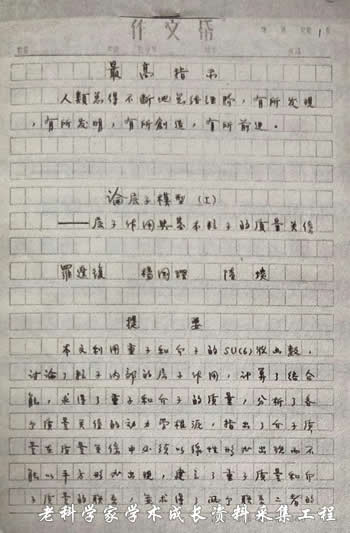 作文纸
最高指示
人类总得不断地总结经验，有所发现
，有所发明，有所创造，有所前进。
论层子模型(I)
——层子作用与基本粒子的质量关系
罗辽复 杨国琛 陆埮
提要
本文利用重子和介子的SU(6)波函数，
讨论了粒子内部的层子作用，计算了结合
能，求得了重子和介子的质量，分析了各
个质量关系的动力学根源，指出了介子质
量在质量关系中必须以线性形式出现而不
能以平方形式出现，建立了重子质量和介
子质量的联系，并求得了两个联系二者的
老科学家学术成长资料采集工程